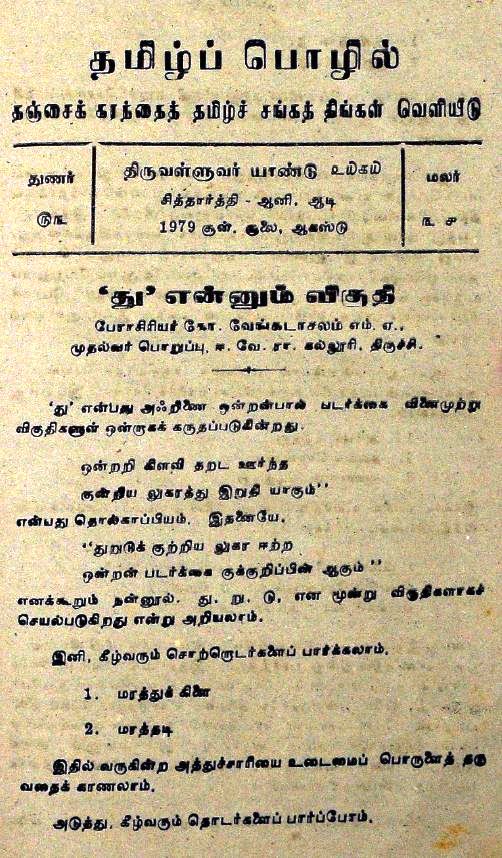 தமிழ்ப் பொழில்
தஞ்சைக் கரந்தைத் தமிழ்ச் சங்கத் திங்கள் வெளியீடு
துணர்
௫௩
திருவள்ளுவர் யாண்டு ௨௰௧௰
சித்தார்த்தி - ஆனி, ஆடி
1979 சூன், சூலை, ஆகஸ்டு
மலர்
௩ ௪
‘து’ என்னும் விகுதி
பேராசிரியர் கோ. வேங்கடாசலம் எம். ஏ.,
முதல்வர் பொறுப்பு, ஈ. வே. ரா. கல்லூரி, திருச்சி.
‘து’ என்பது அஃறிணை ஒன்றன்பால் படர்க்கை வினைமுற்று
விகுதிகளுள் ஒன்றாகக் கருதப்படுகின்றது.
ஒன்றறி கிளவி தறட ஊர்ந்த
குன்றிய லுகரத்து இறுதி யாகும்’’
என்பது தொல்காப்பியம். இதனையே,
‘‘துறுடுக் குற்றிய லுகர ஈற்ற
ஒன்றன் படர்க்கை குக்குறிப்பின் ஆகும் ’’
எனக்கூறும் நன்னூல். து. று. டு, என மூன்று விகுதிகளாகச்
செயல்படுகிறது என்று அறியலாம்.
இனி, கீழ்வரும் சொற்றொடர்களைப் பார்க்கலாம்.
1. மரத்துக் கிளை
2. மரத்தடி
இதில் வருகின்ற அத்துச்சாரியை உடைமைப் பொருளைத் தரு
வதைக் காணலாம்.
அடுத்து, கீழ்வரும் தொடர்களைப் பார்ப்போம்.